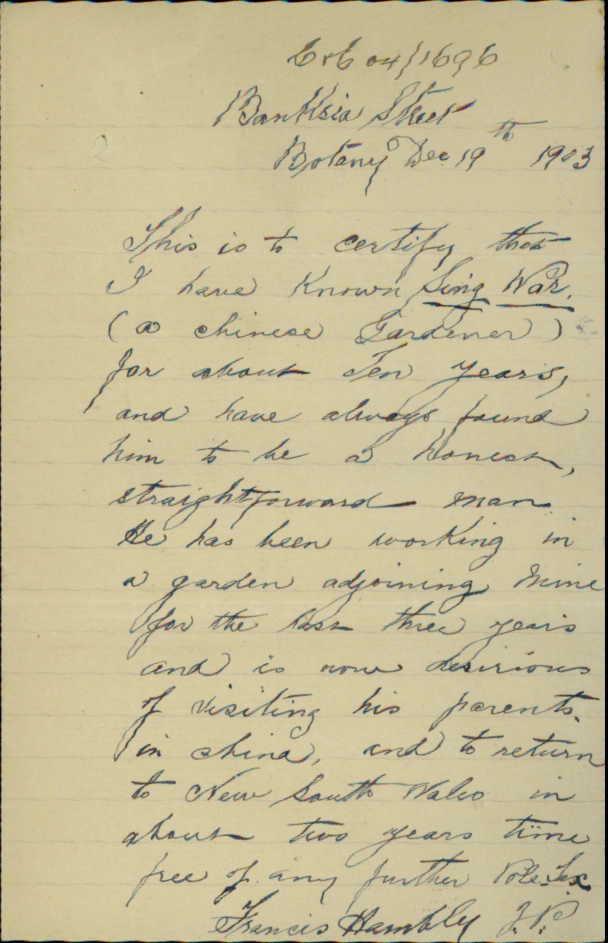 C & C 04/1696
Banksia Street
Botany Dec 19th 1903
This is to certify that
I have Known Sing War.
(a chinese Gardener)
for about Ten years,
and have always found
him to be a honest,
straightforward man.
He has been working in
a garden adjoining mine
for the last three years
and is now desirious
of visiting his parents.
in china, and to return
to New South Wales in
about two years time
free of any further Pole Tax
Francis Hambly J.P.